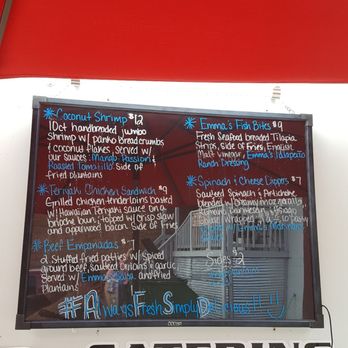 *Coconut Shrimp $12
10ct handbreaded jumbo
shrimp w/ panko breadcrumbs
& coconut flakes, served w/
our sauces: Mango Passion &
Roasted Tomatillo. Side of
fried plantains
*Teriyaki Chicken Sandwich $9
Grilled chicken tenderloins basted
w/ Hawaiian Teriyaki sauce on a
brioche bun, topped w/ crisp slaw
and applewood bacon. Side of Fries
*Beef Empanadas $7
2 Stuffed fried patties w/ Spiced
ground beef, sauteed onions & garlic,
Served w/ Emma's Salsa and fried
Plantains
*Emma's Fish Bites $9
Fresh Seafood breaded Tilapia
Strips, Side of Fries, English
Malt vinegar, Emma's Jalapeño
Ranch Dressing
*Spinach & Cheese Dippers $7
Sauteed Spinach & Artichoke,
blended w/ Creamy mozzarella,
Parmesan
w/ Emma's Marinara
Sides $2
Fries
#Always Fresh Simply
CATERING